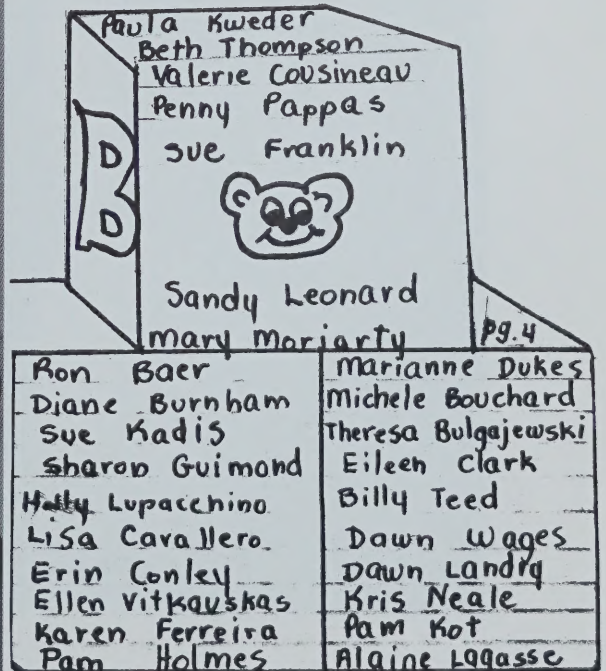 Paula Kweder
Beth Thompson
Valerie Cousineau
Penny Pappas
Sue Franklin
B
Sandy Leonard
Mary Moriarty
pg. 4
Ron Baer
Diane Burnham
Sue Kadis
Sharon Guimond
Holly Lupacchino
Lisa Cavallero
Erin Conley
Ellen Vitkauskas
Karen Ferreira
Pam Holmes
Marianne Dukes
Michele Bouchard
Theresa Bulgajewski
Eileen Clark
Billy Teed
Dawn Wages
Dawn Landry
Kris Neale
Pam Kot
Alaine Lagasse